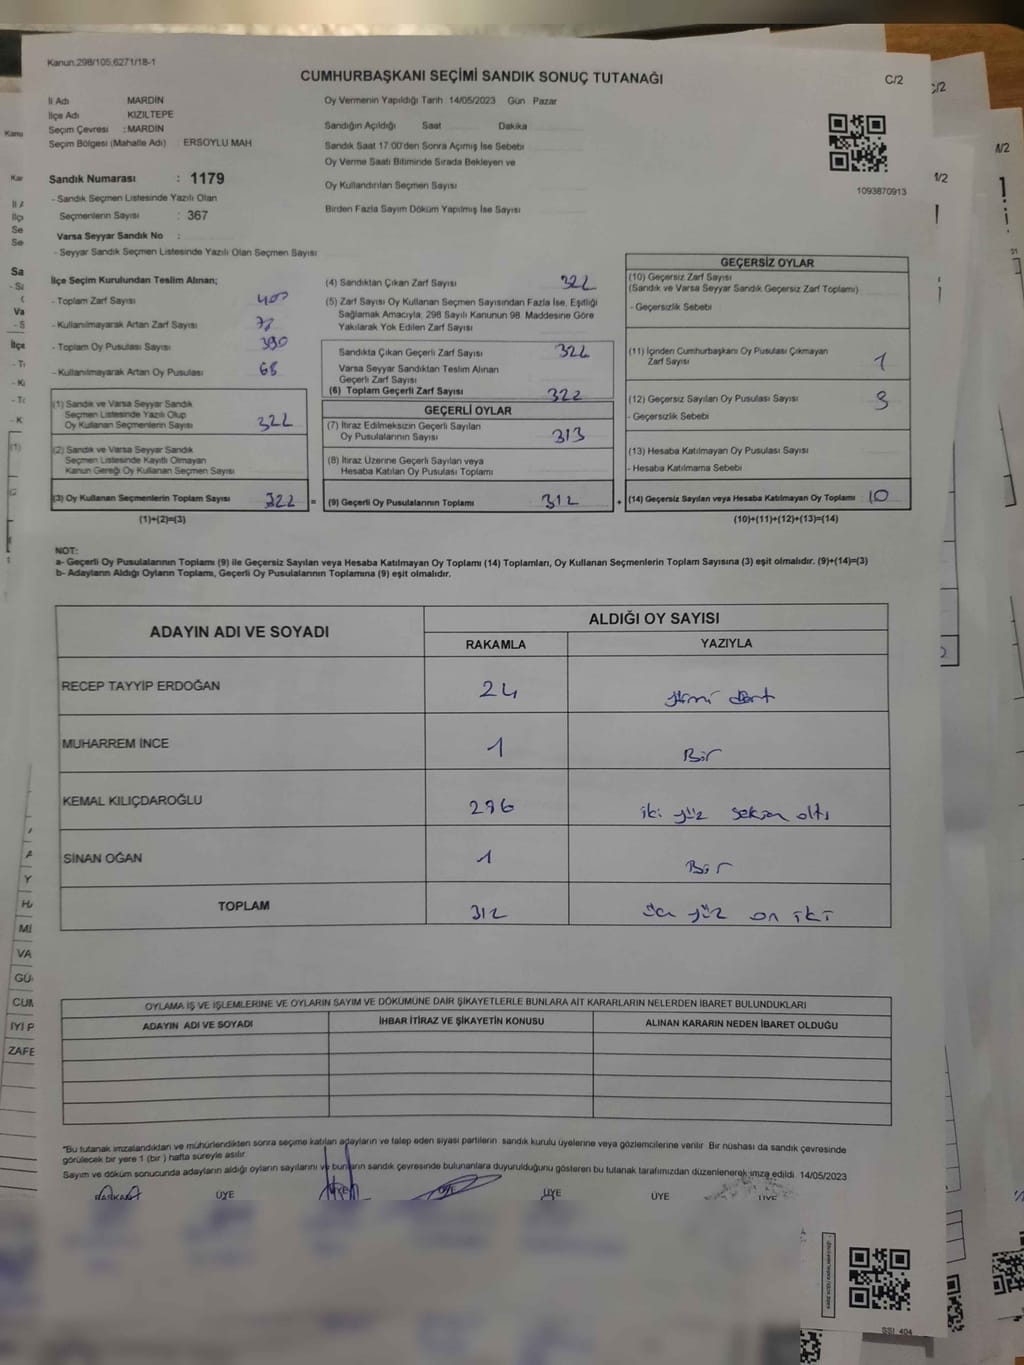 Kanun.298/105,6271/18-1
CUMHURBAŞKANI SEÇİMİ SANDIK SONUÇ TUTANAĞI
C/2
İl Adı MARDİN
İlçe Adı KIZILTEPE
Seçim Çevresi : MARDİN
Seçim Bölgesi (Mahalle Adı) : ERSOYLU MAH
Sandık Numarası : 1179
- Sandık Seçmen Listesinde Yazılı Olan
Seçmenlerin Sayısı : 367
Varsa Seyyar Sandık No :
- Seyyar Sandık Seçmen Listesinde Yazılı Olan Seçmen Sayısı
Oy Vermenin Yapıldığı Tarih 14/05/2023 Gün Pazar
Sandığın Açıldığı Saat Dakika
Sandık Saat 17:00'den Sonra Açımış İse Sebebi
Oy Verme Saati Bitiminde Sırada Bekleyen ve
Oy Kullandırılan Seçmen Sayısı
Birden Fazla Sayım Döküm Yapılmış İse Sayısı
1093870913
İlçe Seçim Kurulundan Teslim Alınan;
- Toplam Zarf Sayısı 400
- Kullanılmayarak Artan Zarf Sayısı
- Toplam Oy Pusulası Sayısı 390
- Kullanılmayarak Artan Oy Pusulası 68
(1) Sandık ve Varsa Seyyar Sandık
Seçmen Listesinde Yazılı Olup
Oy Kullanan Seçmenlerin Sayısı 322
(2) Sandık ve Varsa Seyyar Sandık
Seçmen Listesinde Kayıtlı Olmayan
Kanun Gereği Oy Kullanan Seçmen Sayısı
(3) Oy Kullanan Seçmenlerin Toplam Sayısı 322 =
(1)+(2)=(3)
(4) Sandıktan Çıkan Zarf Sayısı 322
(5) Zarf Sayısı Oy Kullanan Seçmen Sayısından Fazla İse, Eşitliği
Sağlamak Amacıyla, 298 Sayılı Kanunun 98. Maddesine Göre
Yakılarak Yok Edilen Zarf Sayısı
Sandıkta Çıkan Geçerli Zarf Sayısı 322
Varsa Seyyar Sandıktan Teslim Alınan
Geçerli Zarf Sayısı
(6) Toplam Geçerli Zarf Sayısı 322
GEÇERLİ OYLAR
(7) İtiraz Edilmeksizin Geçerli Sayılan
Oy Pusulalarının Sayısı 313
(8) İtiraz Üzerine Geçerli Sayılan veya
Hesaba Katılan Oy Pusulası Toplamı
(9) Geçerli Oy Pusulalarının Toplamı 312 +
GEÇERSİZ OYLAR
(10) Geçersiz Zarf Sayısı
(Sandık ve Varsa Seyyar Sandık Geçersiz Zarf Toplamı)
- Geçersizlik Sebebi
(11) İçinden Cumhurbaşkanı Oy Pusulası Çıkmayan
Zarf Sayısı 1
(12) Geçersiz Sayılan Oy Pusulası Sayısı 9
- Geçersizlik Sebebi
(13) Hesaba Katılmayan Oy Pusulası Sayısı
- Hesaba Katılmama Sebebi
(14) Geçersiz Sayılan veya Hesaba Katılmayan Oy Toplamı 10
(10)+(11)+(12)+(13)=(14)
NOT:
a- Geçerli Oy Pusulalarının Toplamı (9) ile Geçersiz Sayılan veya Hesaba Katılmayan Oy Toplamı (14) Toplamları, Oy Kullanan Seçmenlerin Toplam Sayısına (3) eşit olmalıdır. (9)+(14)=(3)
b- Adayların Aldığı Oyların Toplamı, Geçerli Oy Pusulalarının Toplamına (9) eşit olmalıdır.
ADAYIN ADI VE SOYADI ALDIĞI OY SAYISI
RAKAMLA YAZIYLA
RECEP TAYYİP ERDOĞAN 24 yirmi dört
MUHARREM İNCE 1 Bir
KEMAL KILIÇDAROĞLU 286 iki yüz seksen altı
SİNAN OĞAN 1 Bir
TOPLAM 312 üç yüz on iki
OYLAMA İŞ VE İŞLEMLERİNE VE OYLARIN SAYIM VE DÖKÜMÜNE DAİR ŞİKAYETLERLE BUNLARA AİT KARARLARIN NELERDEN İBARET BULUNDUKLARI
ADAYIN ADI VE SOYADI İHBAR İTİRAZ VE ŞİKAYETİN KONUSU ALINAN KARARIN NEDEN İBARET OLDUĞU
*Bu tutanak imzalandıktan ve mühürlendikten sonra seçime katılan adayların ve talep eden siyasi partilerin sandık kurulu üyelerine veya gözlemcilerine verilir. Bir nüshası da sandık çevresinde
görülecek bir yere 1 (bir) hafta süreyle asılır.
Sayım ve döküm sonucunda adayların aldığı oyların sayılarını ve bunların sandık çevresinde bulunanlara duyurulduğunu gösteren bu tutanak tarafımızdan düzenlenerek imza edildi. 14/05/2023
BAŞKAN ÜYE ÜYE ÜYE ÜYE ÜYE ÜYE
SSİ 404